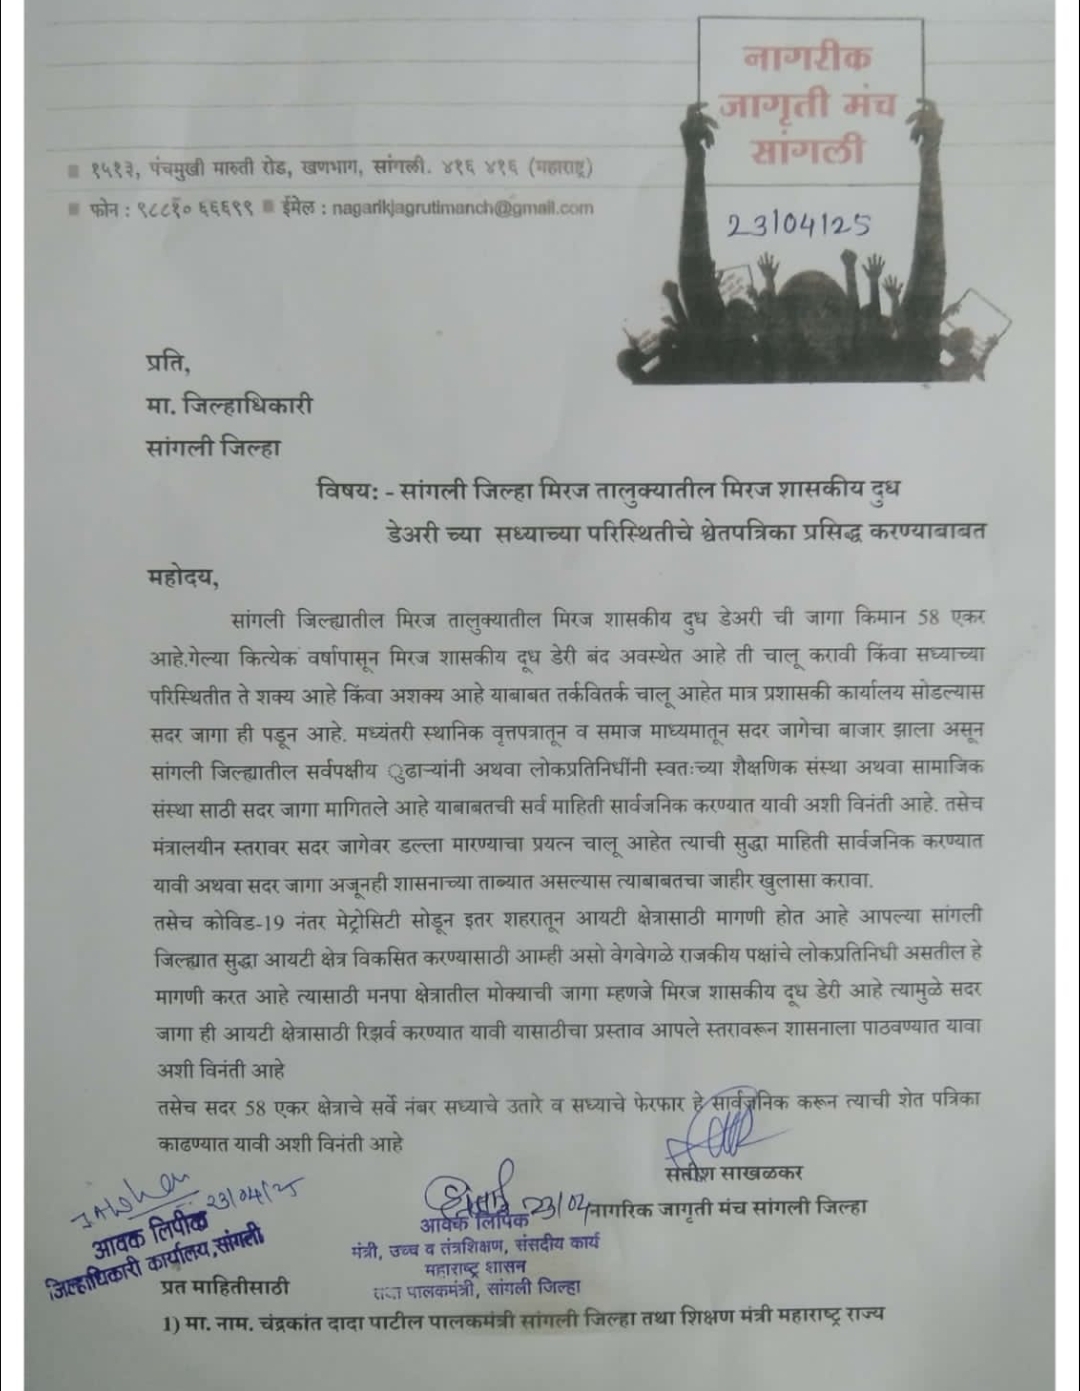 नागरीक
जागृती मंच
सांगली
■ १५१३, पंचमुखी मारुती रोड, खणभाग, सांगली. ४१६ ४१६ (महाराष्ट्र)
■ फोन : ९८८१० ६६६९९ ■ ईमेल : nagarikjagrutimanch@gmail.com
23/04/25
प्रति,
मा. जिल्हाधिकारी
सांगली जिल्हा
विषय: - सांगली जिल्हा मिरज तालुक्यातील मिरज शासकीय दुध
डेअरी च्या सध्याच्या परिस्थितीचे श्वेतपत्रिका प्रसिद्ध करण्याबाबत
महोदय,
सांगली जिल्ह्यातील मिरज तालुक्यातील मिरज शासकीय दुध डेअरी ची जागा किमान 58 एकर
आहे.गेल्या कित्येक वर्षापासून मिरज शासकीय दूध डेरी बंद अवस्थेत आहे ती चालू करावी किंवा सध्याच्या
परिस्थितीत ते शक्य आहे किंवा अशक्य आहे याबाबत तर्कवितर्क चालू आहेत मात्र प्रशासकी कार्यालय सोडल्यास
सदर जागा ही पडून आहे. मध्यंतरी स्थानिक वृत्तपत्रातून व समाज माध्यमातून सदर जागेचा बाजार झाला असून
सांगली जिल्ह्यातील सर्वपक्षीय ुढाऱ्यांनी अथवा लोकप्रतिनिधींनी स्वतःच्या शैक्षणिक संस्था अथवा सामाजिक
संस्था साठी सदर जागा मागितले आहे याबाबतची सर्व माहिती सार्वजनिक करण्यात यावी अशी विनंती आहे. तसेच
मंत्रालयीन स्तरावर सदर जागेवर डल्ला मारण्याचा प्रयत्न चालू आहेत त्याची सुद्धा माहिती सार्वजनिक करण्यात
यावी अथवा सदर जागा अजूनही शासनाच्या ताब्यात असल्यास त्याबाबतचा जाहीर खुलासा करावा.
तसेच कोविड-19 नंतर मेट्रोसिटी सोडून इतर शहरातून आयटी क्षेत्रासाठी मागणी होत आहे आपल्या सांगली
जिल्ह्यात सुद्धा आयटी क्षेत्र विकसित करण्यासाठी आम्ही असो वेगवेगळे राजकीय पक्षांचे लोकप्रतिनिधी असतील हे
मागणी करत आहे त्यासाठी मनपा क्षेत्रातील मोक्याची जागा म्हणजे मिरज शासकीय दूध डेरी आहे त्यामुळे सदर
जागा ही आयटी क्षेत्रासाठी रिझर्व करण्यात यावी यासाठीचा प्रस्ताव आपले स्तरावरून शासनाला पाठवण्यात यावा
अशी विनंती आहे
तसेच सदर 58 एकर क्षेत्राचे सर्वे नंबर सध्याचे उतारे व सध्याचे फेरफार हे सार्वजनिक करून त्याची शेत पत्रिका
काढण्यात यावी अशी विनंती आहे
सतीश साखळकर
नागरिक जागृती मंच सांगली जिल्हा
23/04/25
आवक लिपीक
जिल्हाधिकारी कार्यालय, सांगली
23/04
आवक लिपिक
मंत्री, उच्च व तंत्रशिक्षण, संसदीय कार्य
महाराष्ट्र शासन
तथा पालकमंत्री, सांगली जिल्हा
प्रत माहितीसाठी
1) मा. नाम. चंद्रकांत दादा पाटील पालकमंत्री सांगली जिल्हा तथा शिक्षण मंत्री महाराष्ट्र राज्य